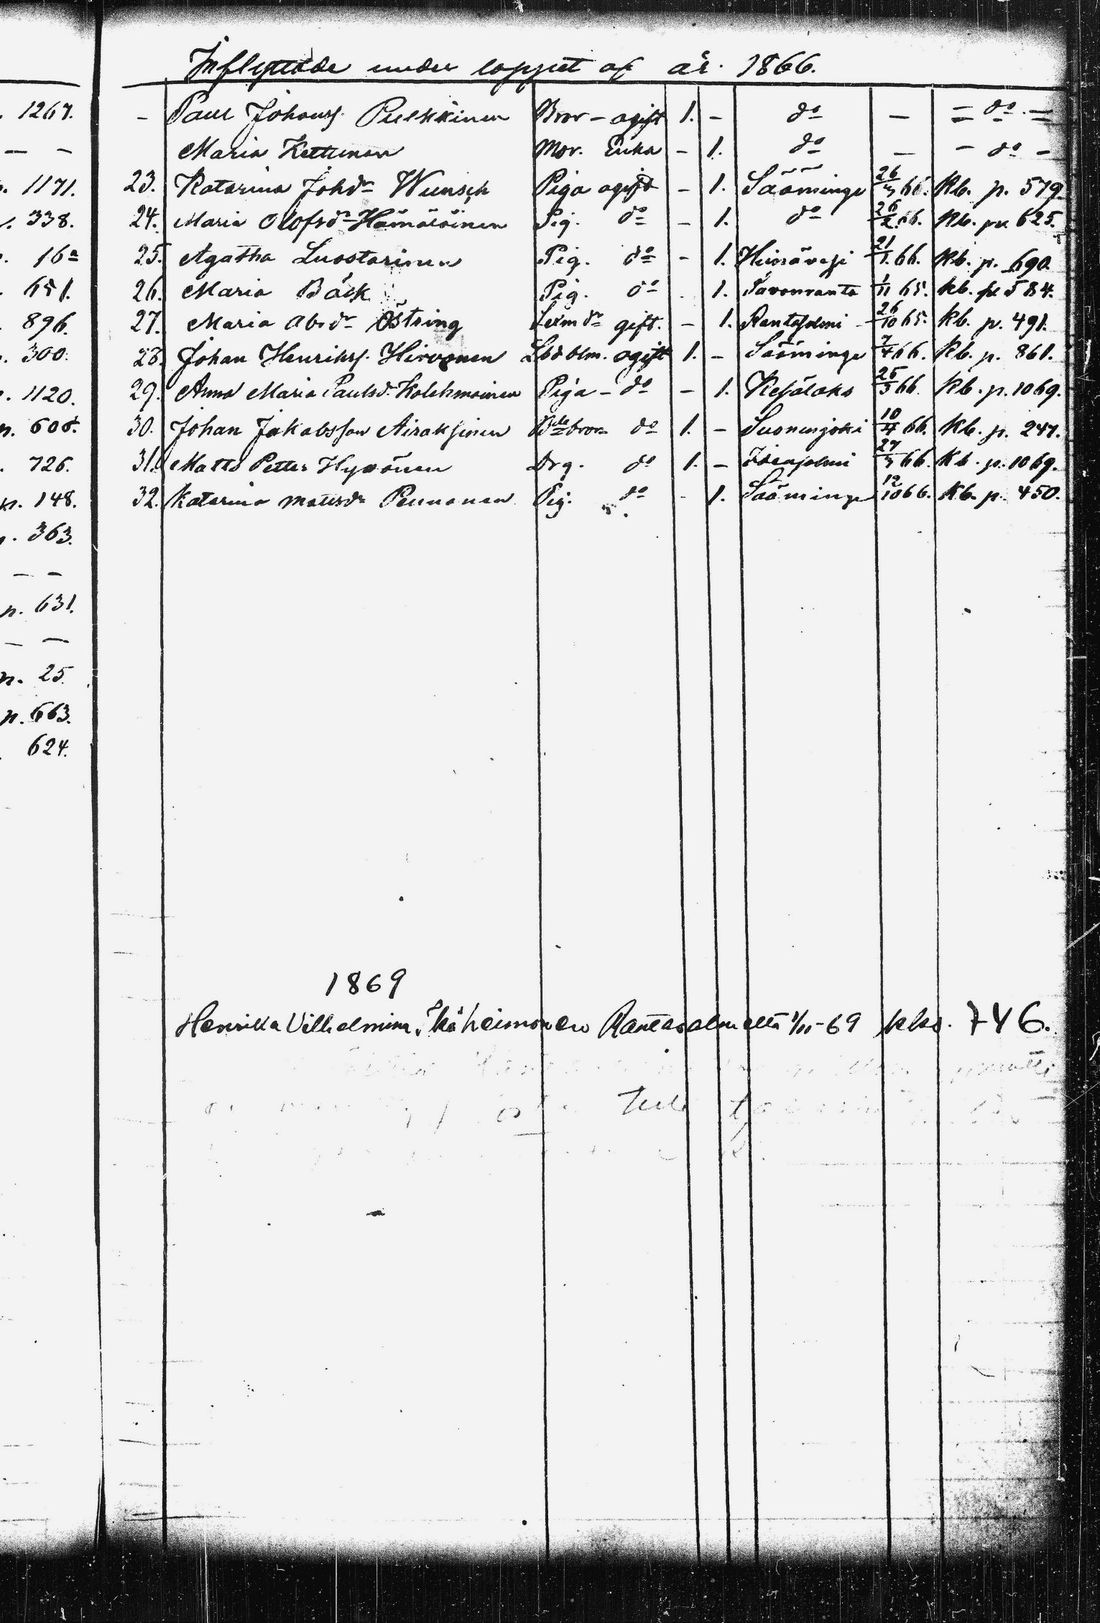 Inflyttade under loppet af år 1866.
1267. - Paul Johansf. Pulkkinen Bror - ogift 1. - do - = do =
- - Maria Kettunen Mor. Enka - 1. do - - do -
p. 1171. 23. Katarina Johdr Wunsch Piga ogift - 1. Sääminge 26/3 66. Kb. p. 579.
338. 24. Maria Olofsdr Hämäläinen Pig. do - 1. do 26/2 66. Kb. p. 625.
16a 25. Agatha Luostarinen Pig. do - 1. Heinävesi 21/1 66. Kb. p. 690
651. 26. Maria Bäck Pig. do - 1. Savonranta 1/11 65. Kb. p. 584.
896. 27. Maria Absdr Östring gift. - 1. Rantasalmi 26/10 65. Kb. p. 491.
300. 28. Johan Henriksf. Hirvonen ogift 1. - Sääminge 7/4 66. Kb. p. 861.
1120. 29. Anna Maria Paulsd. Kolehmainen Piga - do - 1. Kesälaks 25/3 66. Kb. p. 1069.
n. 606. 30. Johan Jakobsson Airaksinen do 1. - Suonenjoki 10/4 66. Kb. p. 247.
726. 31. Matts Petter Hyvönen Drg. do 1. - 27/3 66. Kb. p. 1069.
n. 148. 32. Katarina Mattsdr Pennanen Pig. do - 1. Sääminge 12/10 66. Kb. p. 450.
n. 363.
- -
p. 631.
- -
n. 25.
p. 663.
624.
1869
Henrika Vilhelmina Ikäheimonen Rantasalmelta 1/11-69 kks. 746.